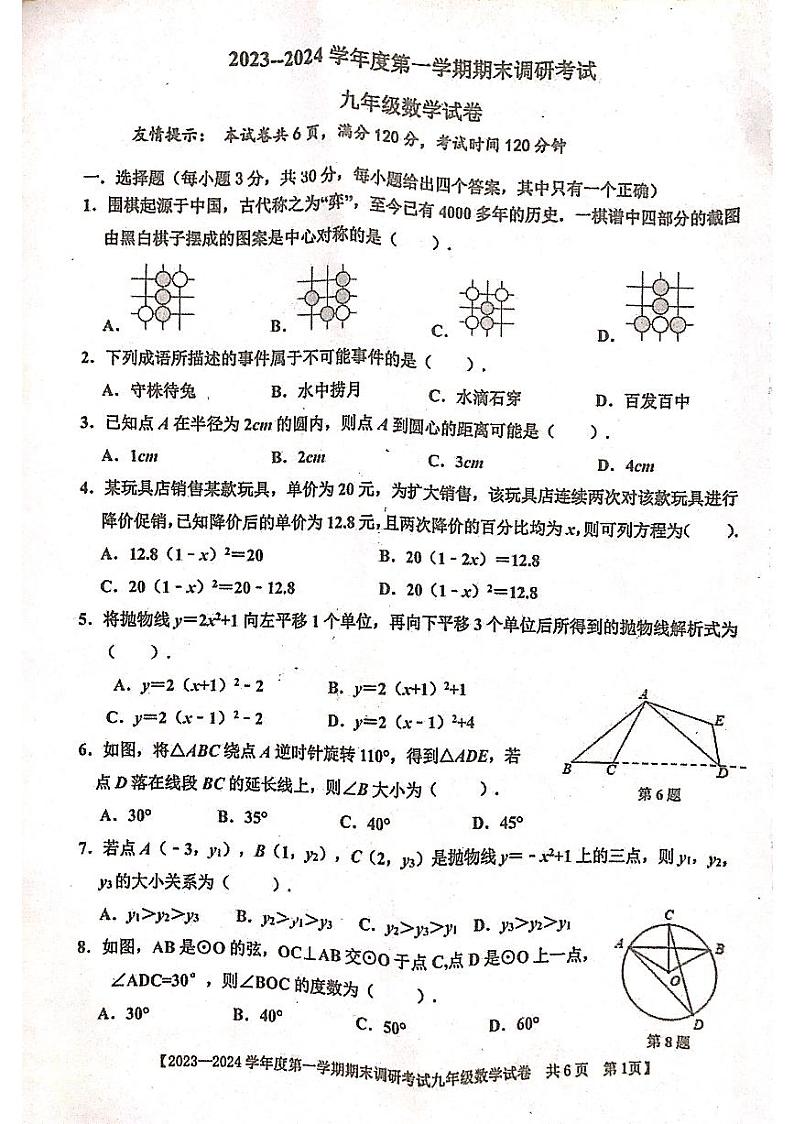 2023--2024 学年度第一学期期末调研考试
九年级数学试卷
友情提示： 本试卷共 6 页，满分 120 分，考试时间 120 分钟
一．选择题（每小题 3 分，共 30 分，每小题给出四个答案，其中只有一个正确）
1．围棋起源于中国，古代称之为“弈”，至今已有 4000 多年的历史．一棋谱中四部分的截图
由黑白棋子摆成的图案是中心对称的是（　　）．
A． B． C． D．
2．下列成语所描述的事件属于不可能事件的是（　　）．
A．守株待兔 B．水中捞月 C．水滴石穿 D．百发百中
3．已知点 A 在半径为 2cm 的圆内，则点 A 到圆心的距离可能是（　　）．
A．1cm B．2cm C．3cm D．4cm
4．某玩具店销售某款玩具，单价为 20 元，为扩大销售，该玩具店连续两次对该款玩具进行
降价促销，已知降价后的单价为 12.8 元，且两次降价的百分比均为 x，则可列方程为（　　）．
A．12.8（1﹣x）²＝20 B．20（1﹣2x）＝12.8
C．20（1﹣x）²＝20﹣12.8 D．20（1﹣x）²＝12.8
5．将抛物线 y＝2x²+1 向左平移 1 个单位，再向下平移 3 个单位后所得到的抛物线解析式为
（　　）．
A．y＝2（x+1）²﹣2 B．y＝2（x+1）²+1
C．y＝2（x﹣1）²﹣2 D．y＝2（x﹣1）²+4
A
E
B C D
第 6 题
6．如图，将△ABC 绕点 A 逆时针旋转 110°，得到△ADE，若
点 D 落在线段 BC 的延长线上，则∠B 大小为（　　）．
A．30° B．35° C．40° D．45°
7．若点 A（﹣3，y₁），B（1，y₂），C（2，y₃）是抛物线 y＝﹣x²+1 上的三点，则 y₁，y₂，
y₃ 的大小关系为（　　）．
A．y₁＞y₂＞y₃ B．y₂＞y₁＞y₃ C．y₂＞y₃＞y₁ D．y₃＞y₂＞y₁
8．如图，AB 是⊙O 的弦，OC⊥AB 交⊙O 于点 C,点 D 是⊙O 上一点，
∠ADC=30°，则∠BOC 的度数为（　　）．
A．30° B．40° C．50° D．60°
C
A B
O
D
第 8 题
【2023—2024 学年度第一学期期末调研考试九年级数学试卷 共 6 页 第 1页】